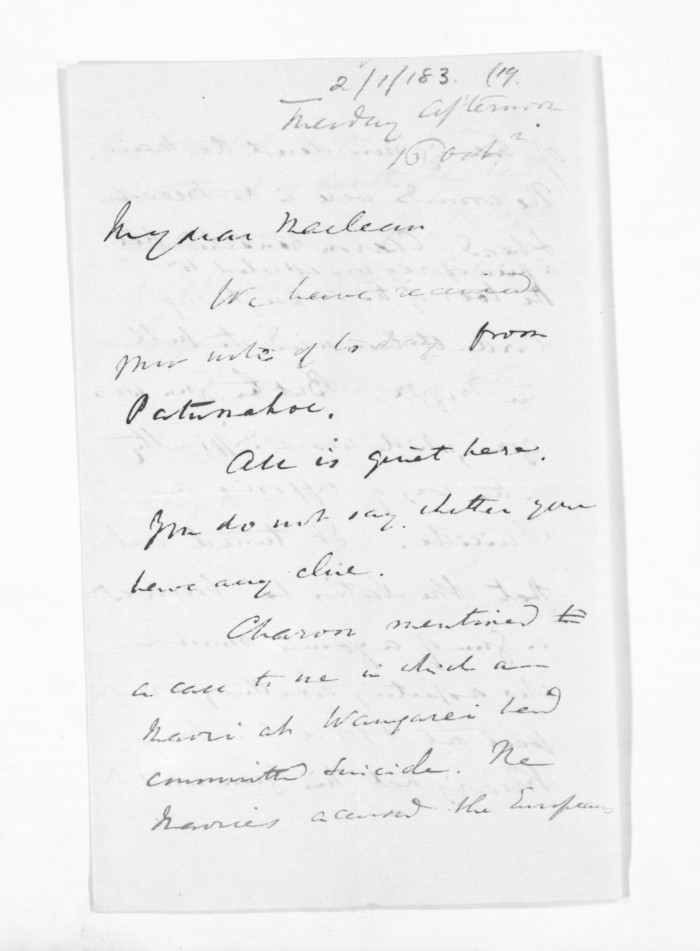 2/1/183. (19.
Tuesday afternoon
16 Oct.r
My dear Maclean
We have received
your note of to day from
Patumahoe.
All is quiet here.
You do not say whether you
have any clue.
Charon mentioned to
a case to me in which a
Maori at Wangarei had
committed suicide. The
Maories accused the Europeans